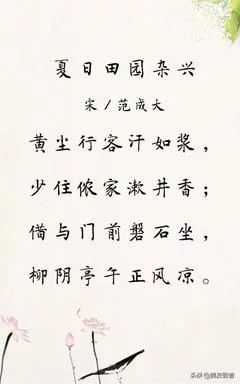 夏日田园杂兴
宋/范成大
黄尘行客汗如浆，
少住侬家漱井香；
借与门前磐石坐，
柳阴亭午正风凉。